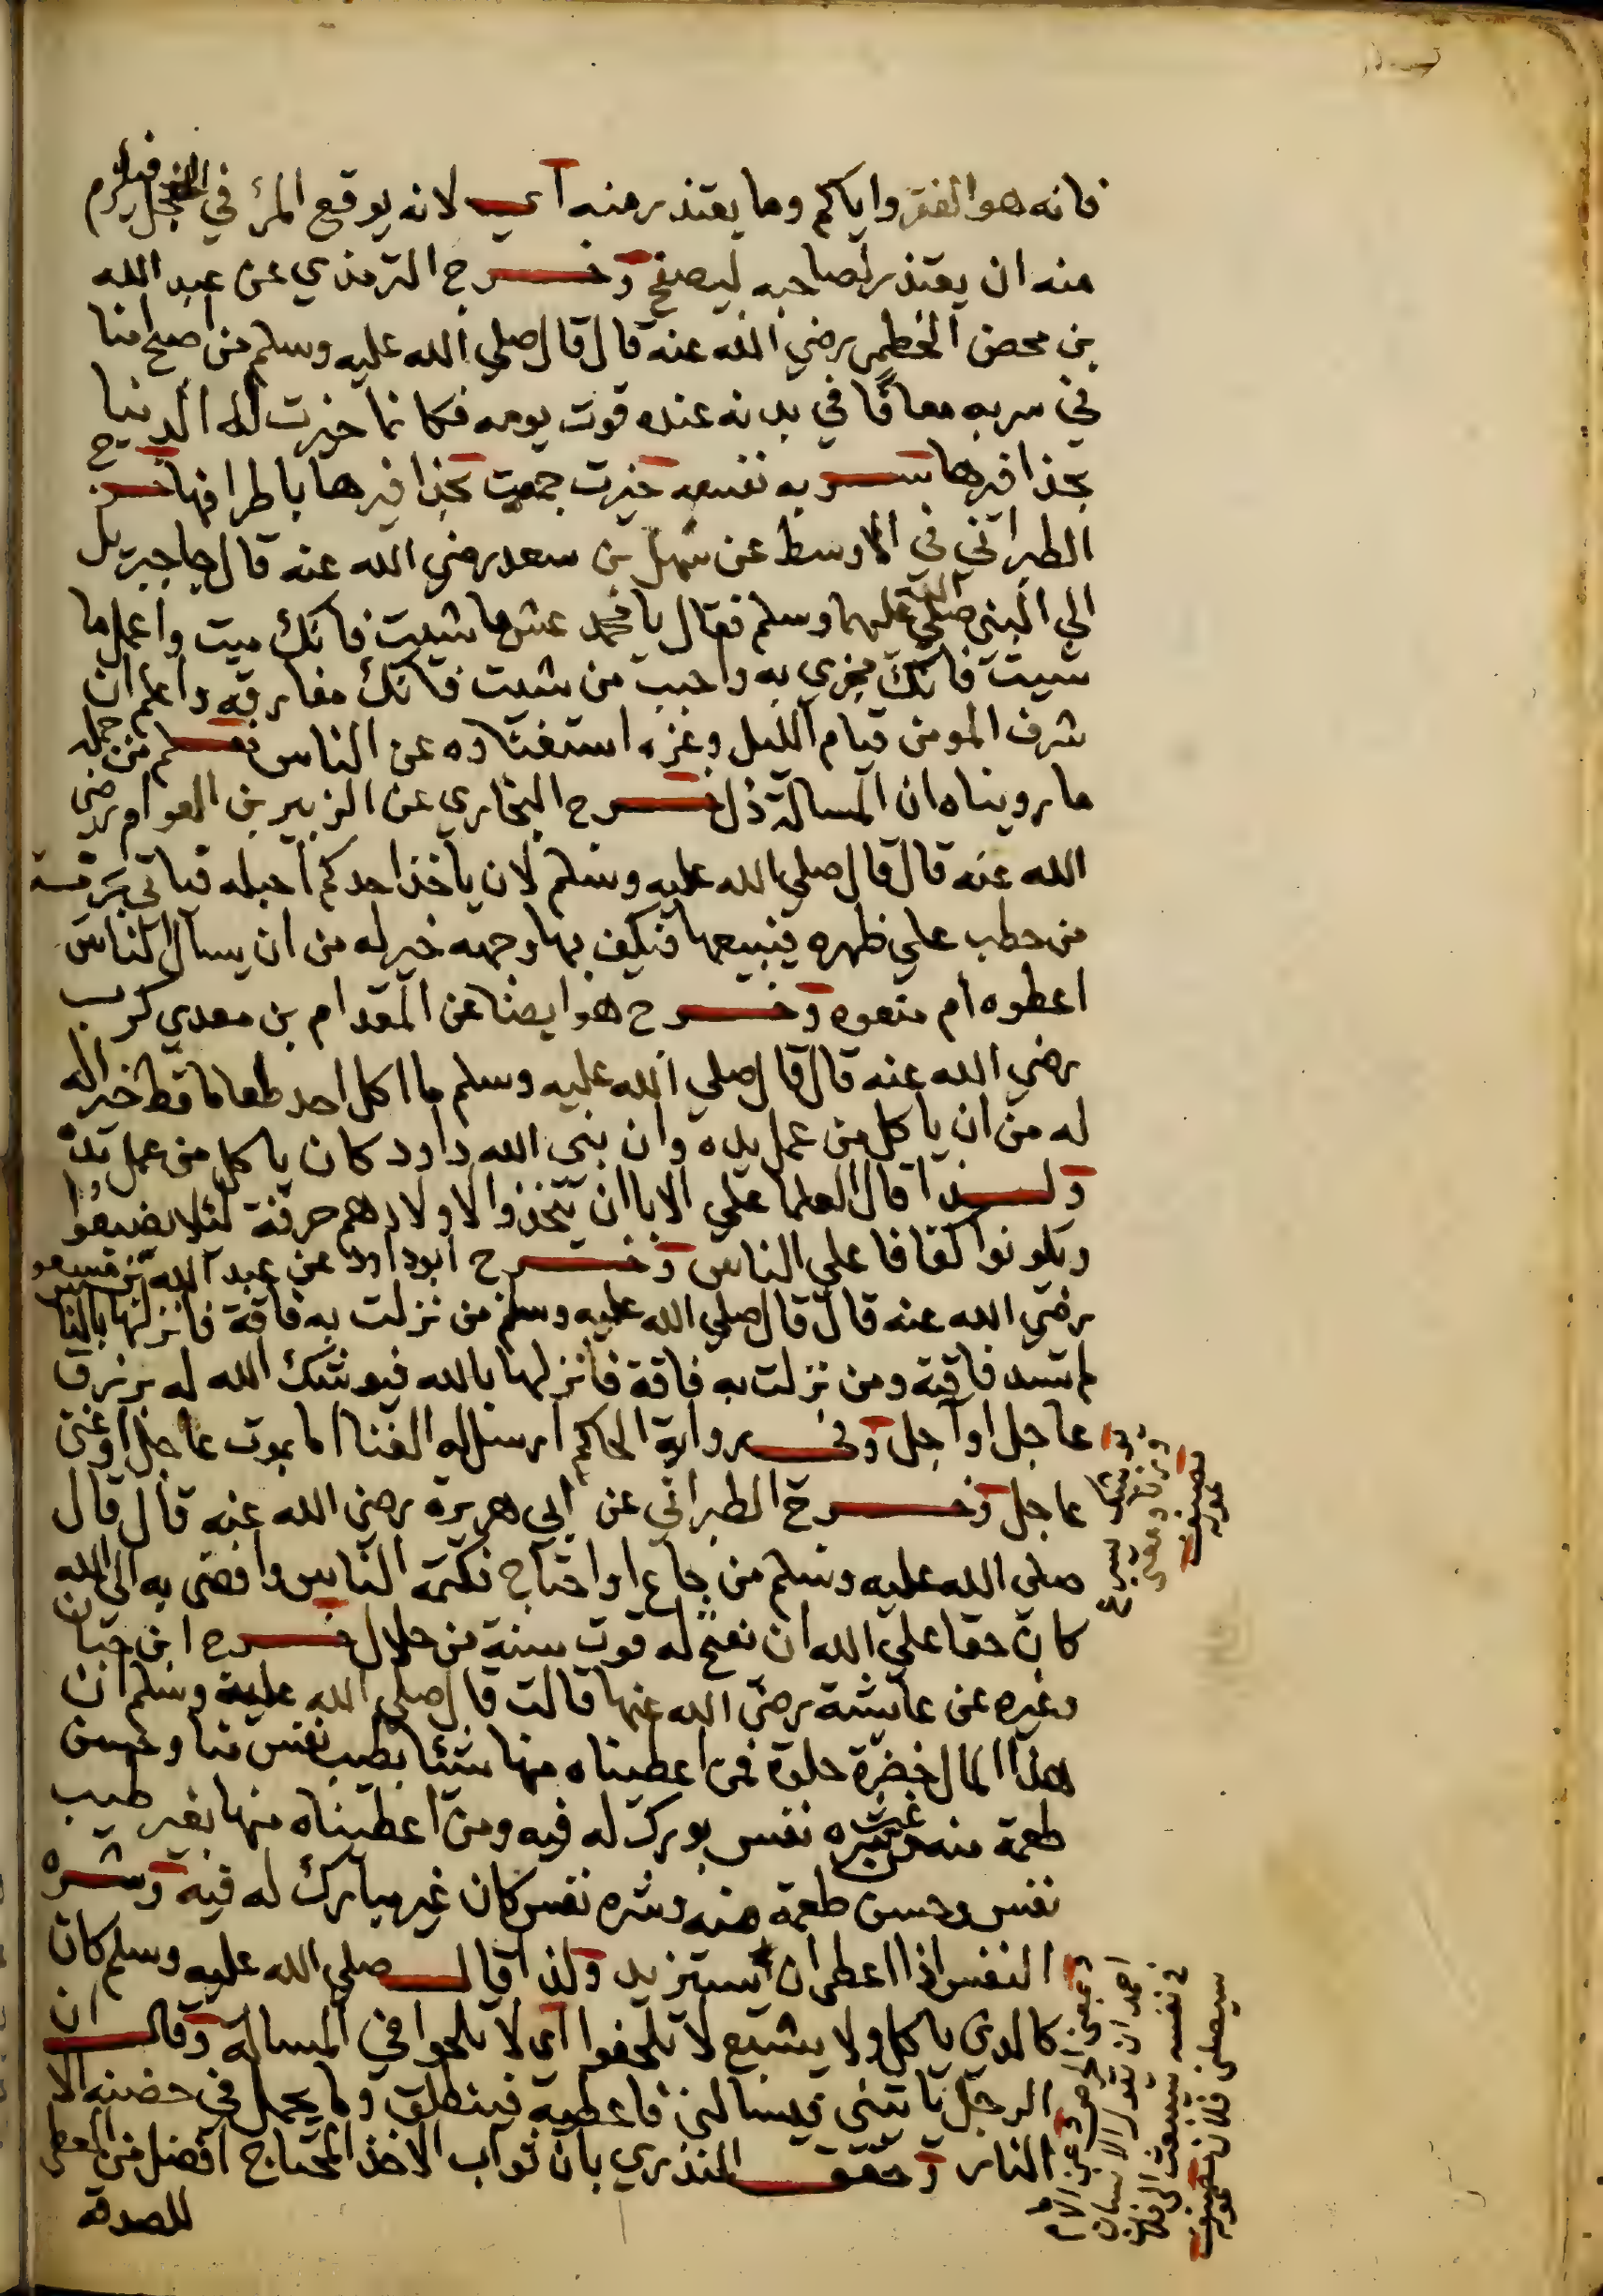 فانه هو الفقر واياكم وما يعتذر منه اي لانه يوقع المرئ في الخجل فيلزم
منه ان يعتذر لصاحبه ليصفح وخرج الترمذي عن عبد الله
بن محصن الخطمي رضي الله عنه قال قال صلي الله عليه وسلم من اصبح امنا
في سربه معافًا في بدنه عنده قوت يومه فكانما حيزت له الدنيا
بحذافيرها سربه نفسه حيزت جمعت بحذافيرها باطرافها خرج
الطبراني في الاوسط عن سهل بن سعد رضي الله عنه قال جا جبريل
الي النبي صلي الله عليهما وسلم فقال يا محمد عش ما شيت فانك ميت واعمل ما
شيت فانك مجزي به واحبب من شيت فانك مفارقه واعلم ان
شرف المومن قيام الليل وعزه استغناوه عن الناس فعلم من جملة
ما رويناه ان المسالة ذل خرج البخاري عن الزبير بن العوام رضي
الله عنه قال قال صلي الله عليه وسلم لان ياخذ احدكم احبله فياتي بحزمة
من حطب علي ظهره فيبيعها فيكف بها وجهه خير له من ان يسال الناس
اعطوه ام منعوه وخرج هو ايضا عن المقدام بن معدي كرب
رضي الله عنه قال قال صلي الله عليه وسلم ما اكل احد طعاما قط خيرا له
له من ان ياكل من عمل يده وان نبي الله داود كان ياكل من عمل يده
ولذا قال العلما علي الابا ان يتخذوا لاولادهم حرفة لئلا يضيعوا
ويكونوا كفافا علي الناس وخرج ابو داود عن عبد الله بن مسعود
رضي الله عنه قال قال صلي الله عليه وسلم من نزلت به فاقة فانزلها بالناس
لم تسد فاقته ومن نزلت به فاقة فانزلها بالله فيوشك الله له برزق
عاجل او آجل وفي رواية الحاكم ارسل له الغنا اما بموت عاجل او غني
عاجل وخرج الطبراني عن ابي هريرة رضي الله عنه قال قال
صلي الله عليه وسلم من جاع او احتاج فكتمه الناس وافضى به الي الله
كان حقا علي الله ان يفتح له قوت سنة من حلال خرج ابن حبان
وغيره عن عايشة رضي الله عنها قالت قال صلي الله عليه وسلم ان
هذا المال خضرة حلوة فمن اعطيناه منها شئا بطيب نفس منا وحسن
طعمة منه من غير شره نفس بورك له فيه ومن اعطيناه منها بغير طيب
نفس وحسن طعمة منه وشره نفس كان غير مبارك له فيه وشره
النفس اذا اعطي ان يستزيد ولذا قال صلي الله عليه وسلم كان
كالذي ياكل ولا يشبع لا تلحفوا اي لا تلحوا في المسالة وقال ان
الرجل ياتيني فيسالني فاعطيه فينطلق وما يحمل في حضنه الا
النار وحقق المنذري بان ثواب الاخذ المحتاج افضل من المعطي
للصدقة